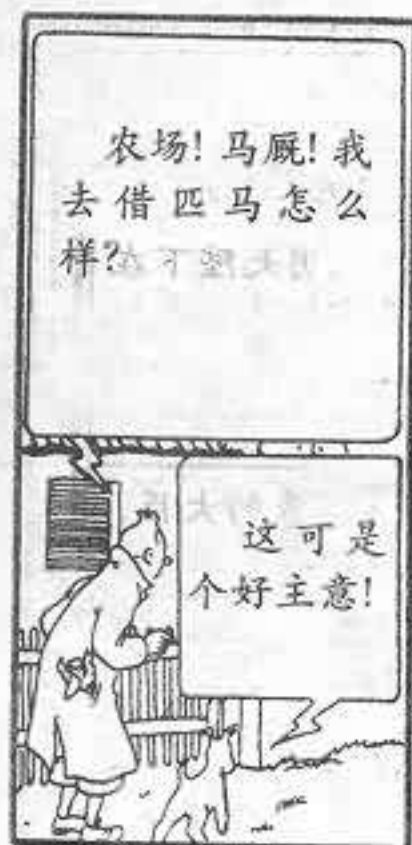 农场！马厩！我
去借匹马怎么
样？
这可是
个好主意！